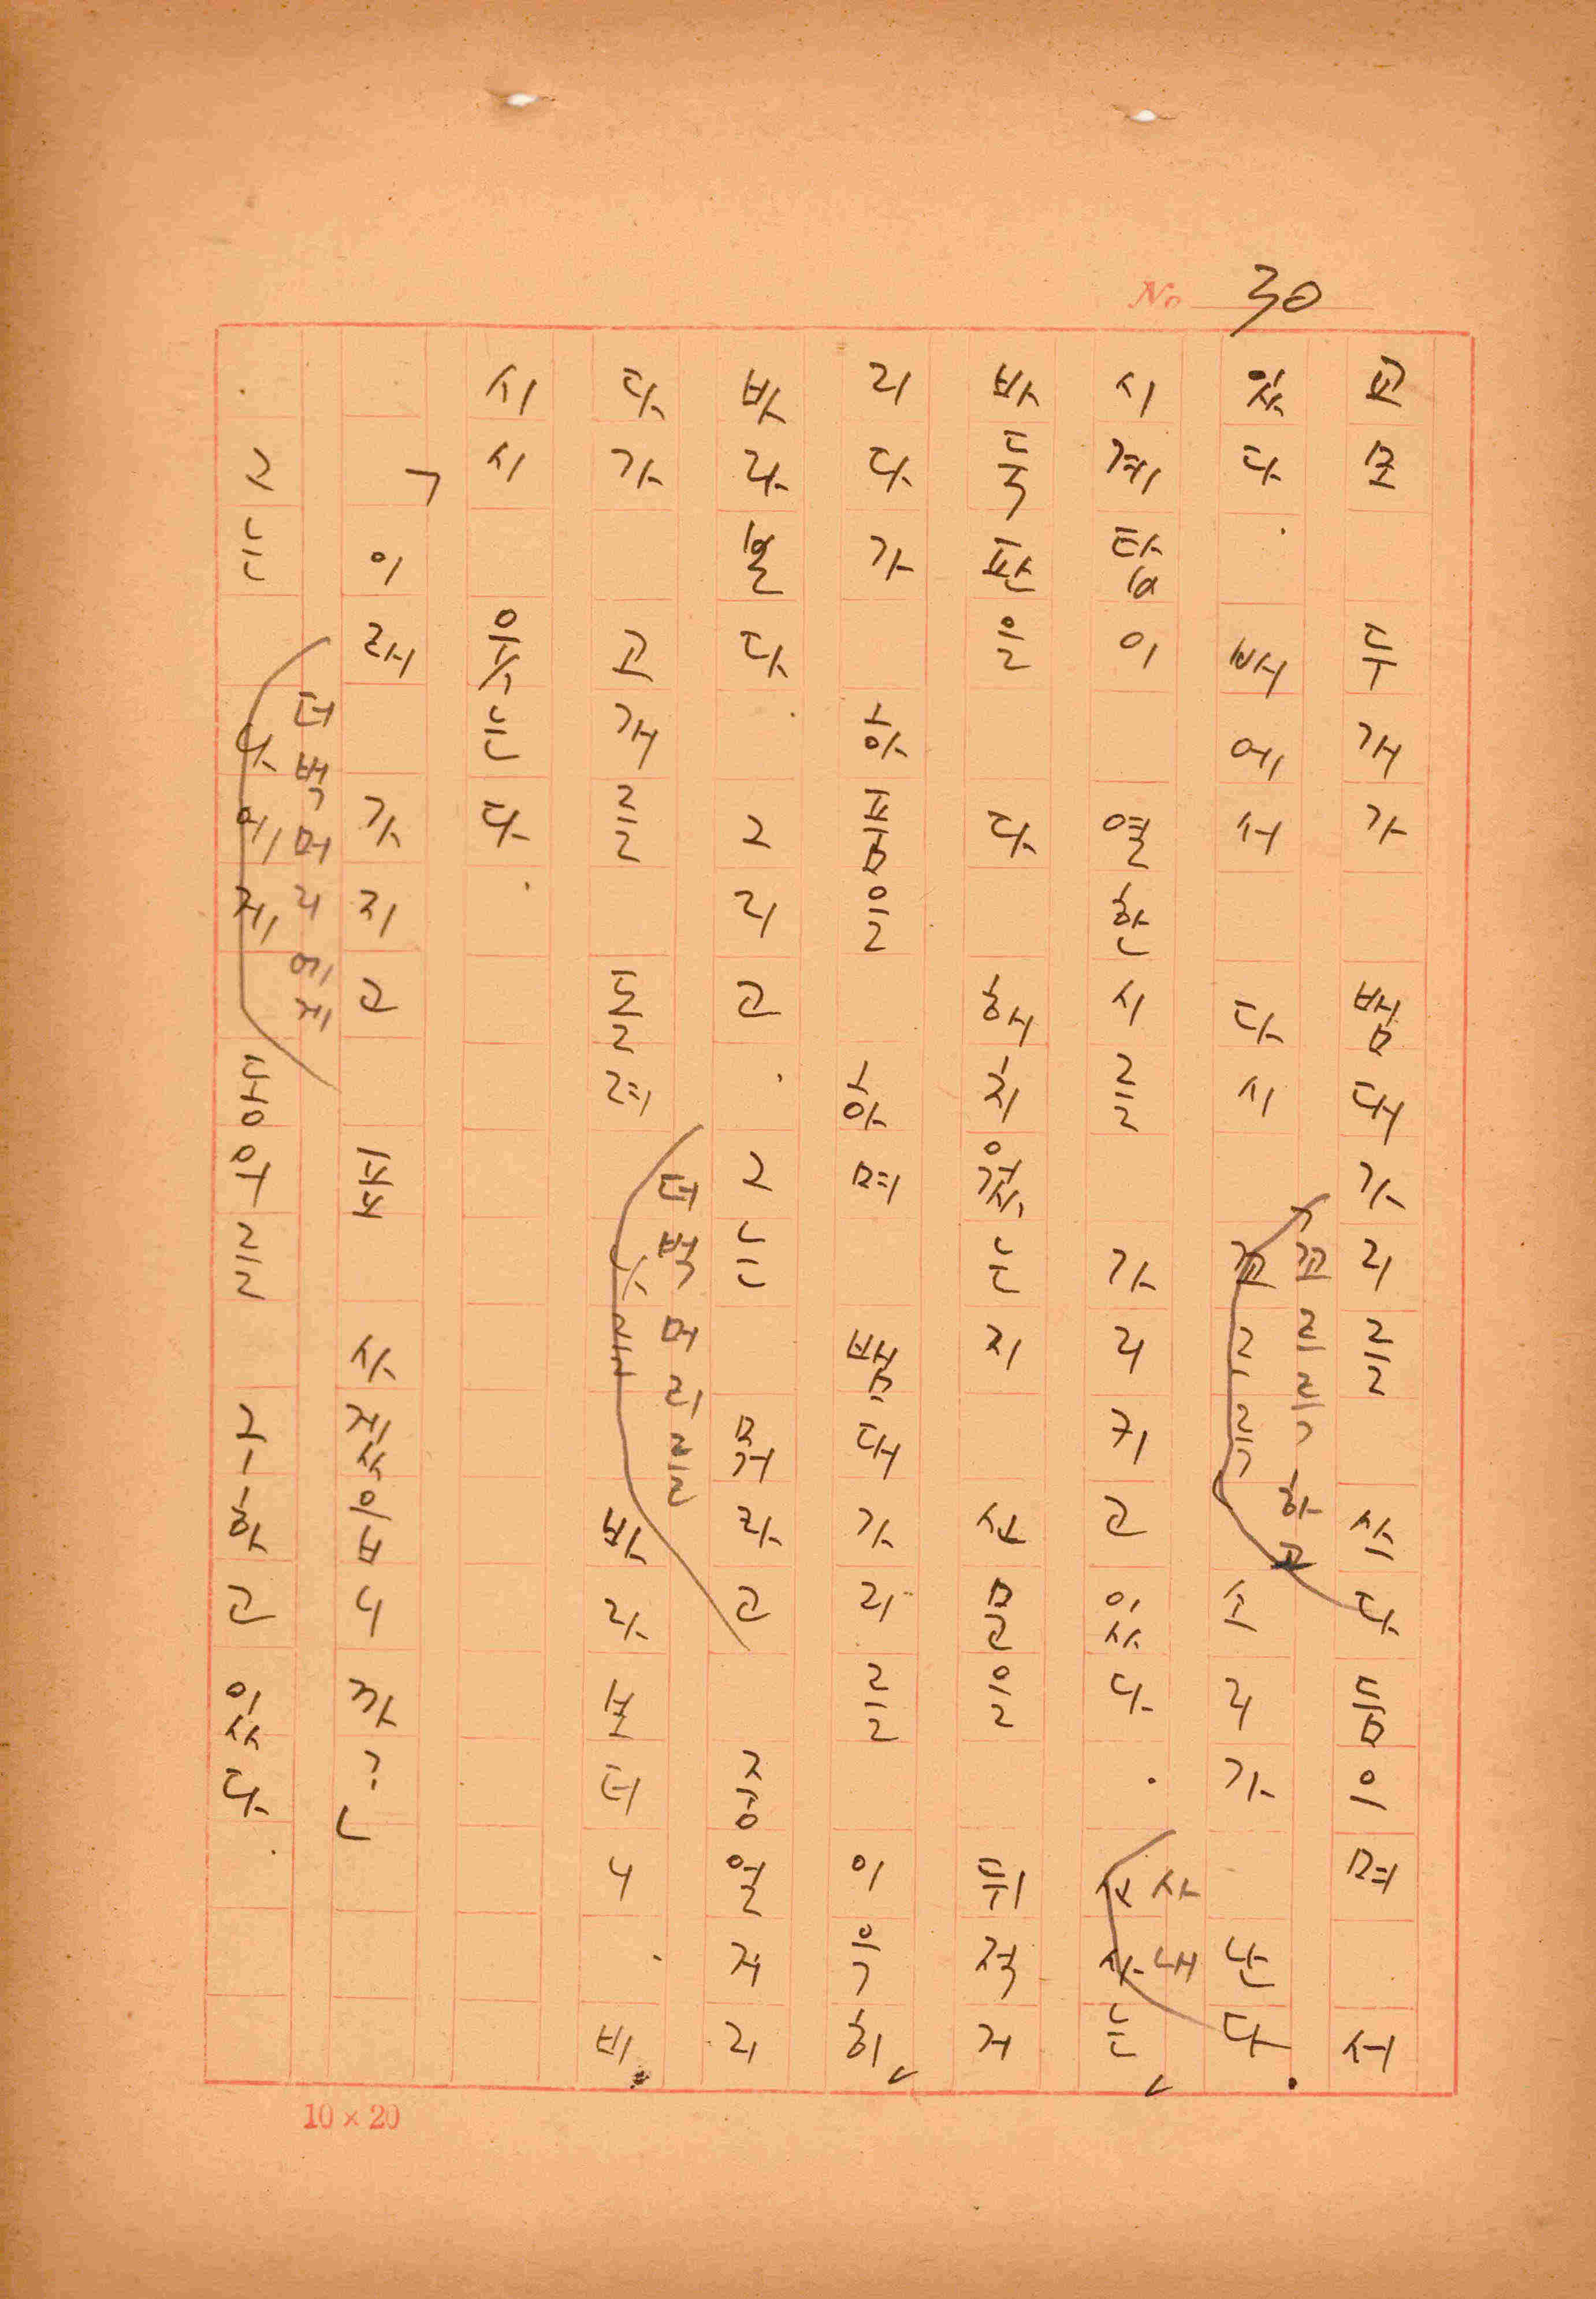 30
교모 두개가 범대가리를 쓰다듬으며 서
있다. 배에서 다시 꼬르륵 소리가 난다.
꼬르륵하고
시계탑이 열한시를 가리키고 있다. 사나는
사내
바둑판을 다 해치웠는지 뒤적거
리다가 하품을 하며 범대가리를 이윽히
바라본다. 그리고. 그는 뭐라고 중얼거리
다가 고개를 돌려 나를 바라보더니. 비
더벅머리를
시시 웃는다.
「이래 가지고
그는 나에게 동의를 구하고 있다.
더벅머리에게
No
10×20